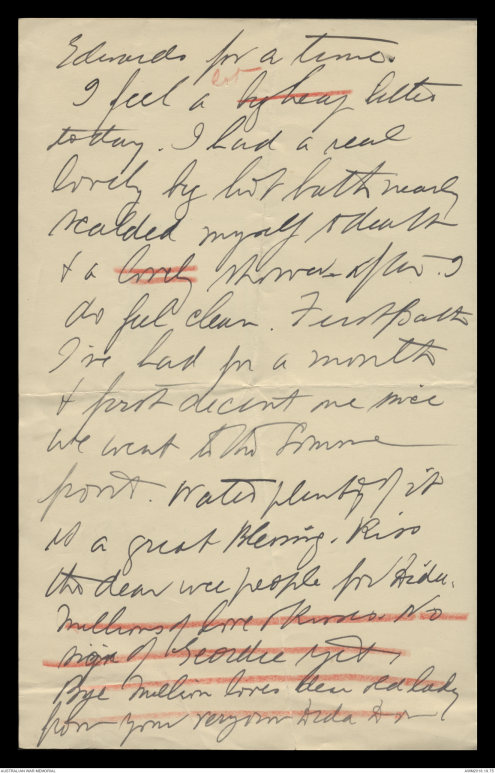 Edwards for a time.
lot
I feel a big heap better
today. I had a real
lovely big hot bath nearly
scalded myself to death
& a lovely shower after. I
do feel clean. First Bath
I've had for a month
& first decent one since
we went to the Somme
front. Water plenty of it
is a great Blessing. Kiss
the dear wee people for Dida.
Millions of love & kisses. No
sign of Geordie yet.
Bye Million loves dear old lady
from your very own Dida
AUSTRALIAN WAR MEMORIAL